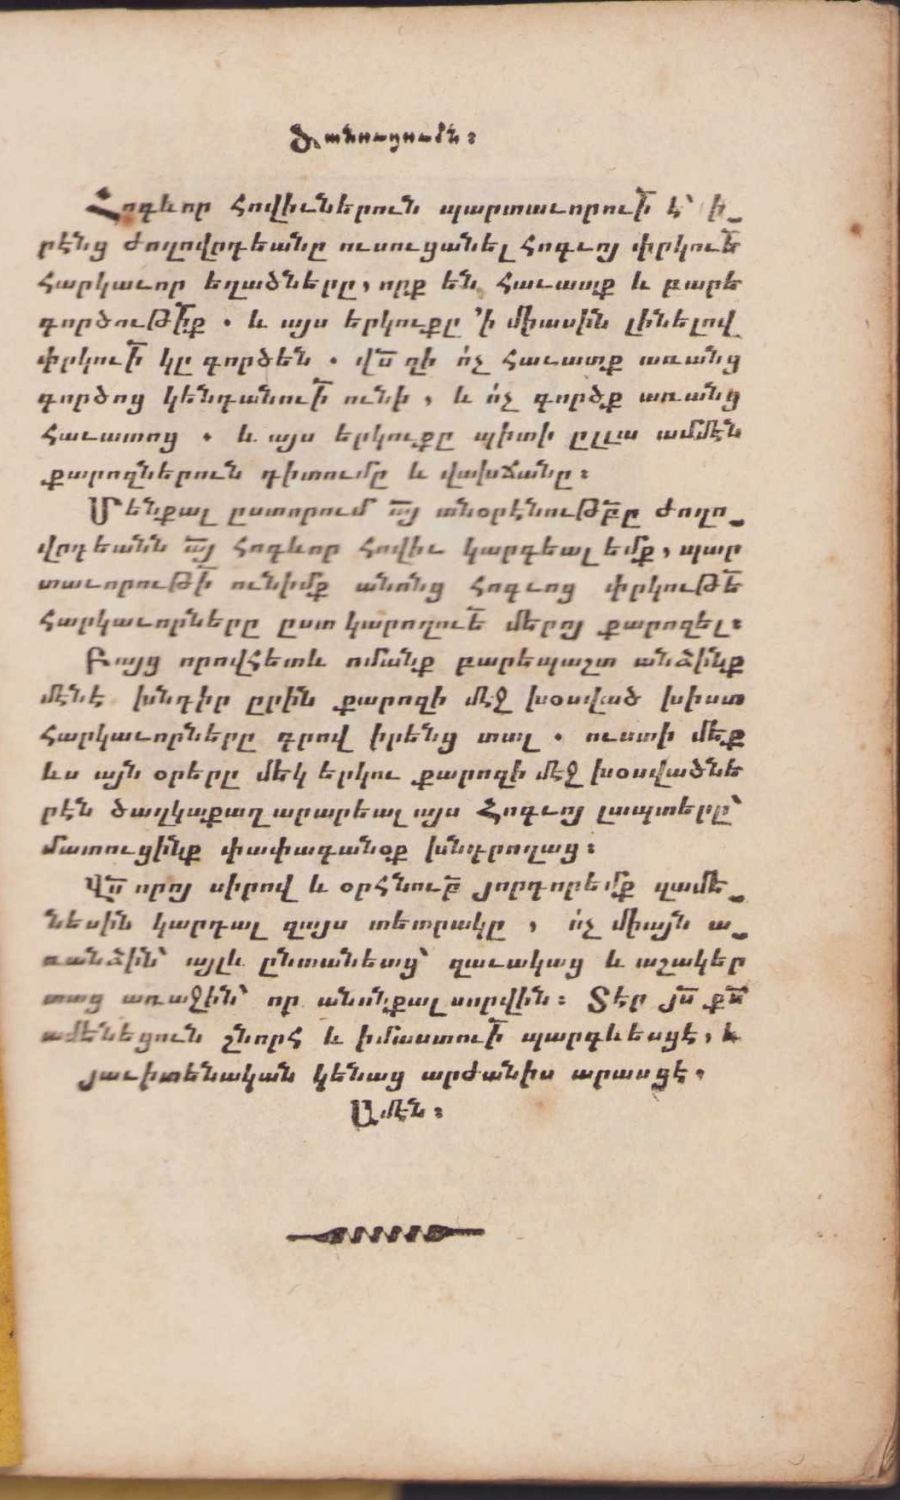 Ծանուցումն։
Հոգևոր Հովիւներուն պարտաւորու՟ի է՝ ի֊
րէնց ժողովրդեանը ուսուցանել Հոգւոյ փրկու՟ե
Հարկաւոր եղածները, որք են Հաւատք և բարե
գործութ՟իք . և այս երկուքը ՚ի միասին լինելով
փրկու՟ի կը գործեն . վ՟ս զի ո՛չ Հաւատք առանց
գործոց կենդանու՟ի ունի , և ո՛չ գործք առանց
Հաւատոց . և այս երկուքը պիտի ըլլա ամմէն
քարոզներուն դիտումը և վախճանը։
Մենքալ ըստորում ՟այ տնօրէնութ՟բը ժողո֊
վրդեանն ՟այ Հոգևոր Հովիւ կարգեալ եմք, պար
տաւորութ՟ի ունիմք անոնց Հոգւոց փրկութ՟ե
Հարկաւորները ըստ կարողու՟ե մերոյ քարոզել։
Բայց որովՀետև ոմանք բարեպաշտ անձինք
մէնէ խնդիր ըրին քարոզի մէջ խօսված խիստ
Հարկաւորները գրով իրենց տալ . ուստի մեք
ևս այն օրերը մեկ երկու քարոզի մէջ խօսվածնե
րէն ծաղկաքաղ արարեալ այս Հոգւոյ լապտերը՝
մատուցինք փափագանօք խնդրողաց։
Վ՟ս որոյ սիրով և օրՀնու՟բ յորդորեմք զամե֊
նեսին կարդալ զայս տետրակը , ո՛չ միայն ա֊
ռանձին՝ այլև ընտանեաց՝ զաւակաց և աշակեր
տաց առաջին՝ որ անոնքալ սորվին։ Տէր յ՟ս ք՟ս
ամենեցուն շնորՀ և իմաստու՟ի պարգևեսցէ, և
յաւիտենական կենաց արժանիս արասցէ.
Ամէն։